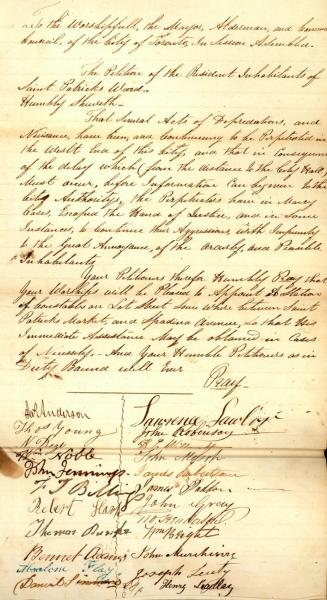 To the Worshipfull, the Mayor, Alderman, and Common
Council, of the City of Toronto, In Session Assembled.
The Petition of the Resident Inhabitants of
Saint Patricks Ward.
Humbly Sheweth
That Several Acts of Depredations, and
Nuisance, have been and Continueing to be Perpetrated in
the West End of this City, and that in Consequence
of the delay which (from the distance to the City Hall)
Must occur, before Information Can be given to the
City Authoritys, the Perpetrators have in Many
Cases, Escaped the Hand of Justice, and in Some
Instances, to Continue this Aggressions, with Impunity
to the Great Annoyance, of the Orderly, and Peacible
Inhabitants.
Your Petitioners therefor Humbly Pray that
Your Worships will be Pleased to Appoint a Station
of Constables on Lot Street Some where between Saint
Patricks Market, and Spadina Avenue, So that Her
Immediate Assistance May be obtained in Cases
of Necessity. And Your Humble Petitioners as in
Duty Bound will Ever
Pray
Anderson
Lawrence Lawlor
Thos Young
John Robinson
Noble
John
John Jennings
James Robertson
James
Robert
John Grey
Thomas
Wm Wright
Bennet Adams
John Murchison
Absalom
Joseph Lusty
Daniel
Henry Leadlay